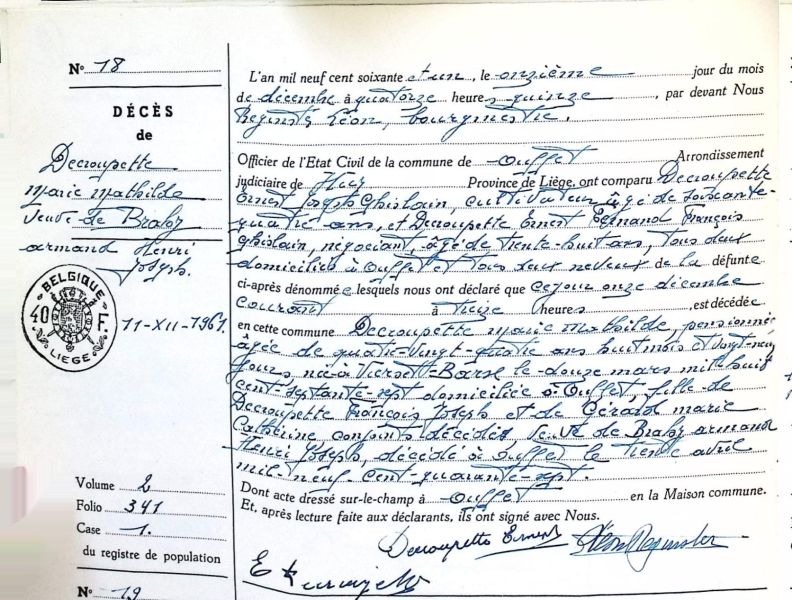 N° 18
DÉCÈS
de
Decroupette
Marie Mathilde
Veuve de Brahy
Armand Henri
Joseph.
BELGIQUE
40 F.
LIEGE
11-XII-1961.
Volume 2
Folio 341
Case 1.
du registre de population
N° 19
L'an mil neuf cent soixante et un, le onzième jour du mois
de décembre à quatorze heures quinze, par devant Nous
Reginster Léon, bourgmestre.
Officier de l'Etat Civil de la commune de Ouffet Arrondissement
judiciaire de Huy Province de Liège, ont comparu Decroupette
Ernest Joseph Ghislain, cultivateur âgé de soixante-
quatre ans, et Decroupette Ernest Fernand François
Ghislain, négociant âgé de trente-huit ans, tous deux
domiciliés à Ouffet et tous deux neveux de la défunte
ci-après dénommée lesquels nous ont déclaré que ce jour onze décembre
courant à treize heures, est décédée
en cette commune Decroupette Marie Mathilde, pensionnée
âgée de quatre-vingt-quatre ans huit mois et vingt-neuf
jours, née à Vierset-Barse le douze mars mil huit
cent septante-sept domiciliée à Ouffet, fille de
Decroupette François Joseph et de Gérard Marie
Catherine conjoints décédés, veuve de Brahy Armand
Henri Joseph, décédé à Ouffet le trente avril
mil neuf cent quarante-sept.
Dont acte dressé sur-le-champ à Ouffet en la Maison commune.
Et, après lecture faite aux déclarants, ils ont signé avec Nous.
Decroupette Ernest Léon Reginster